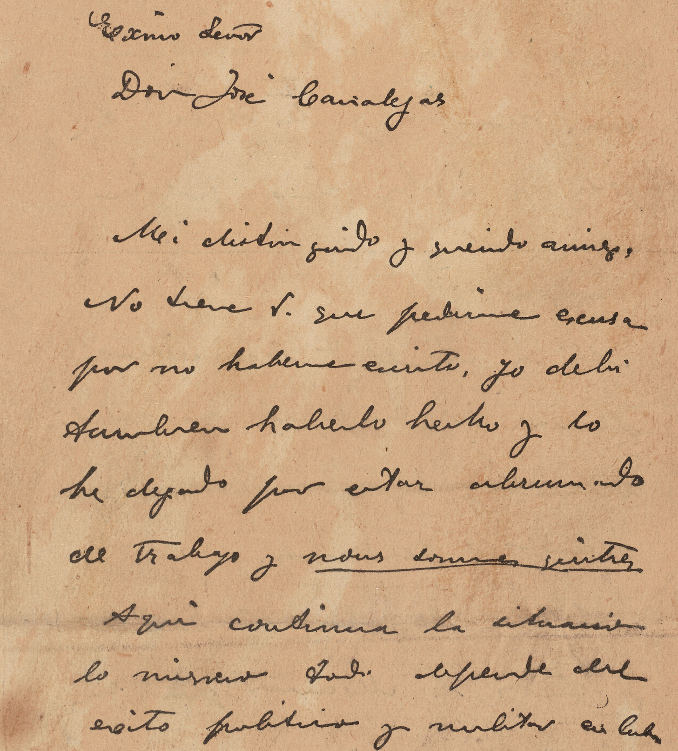 Excmo Señor
Don José Canalejas
Mi distinguido y querido amigo,
No tiene V. que pedirme excusa
por no haberme escrito, yo debí
tambien haberlo hecho y lo
he dejado por estar abrumado
de trabajo y nous sommes quittes
Aqui continua la situacion
lo mismo todo depende del
exito politico y militar en Cuba